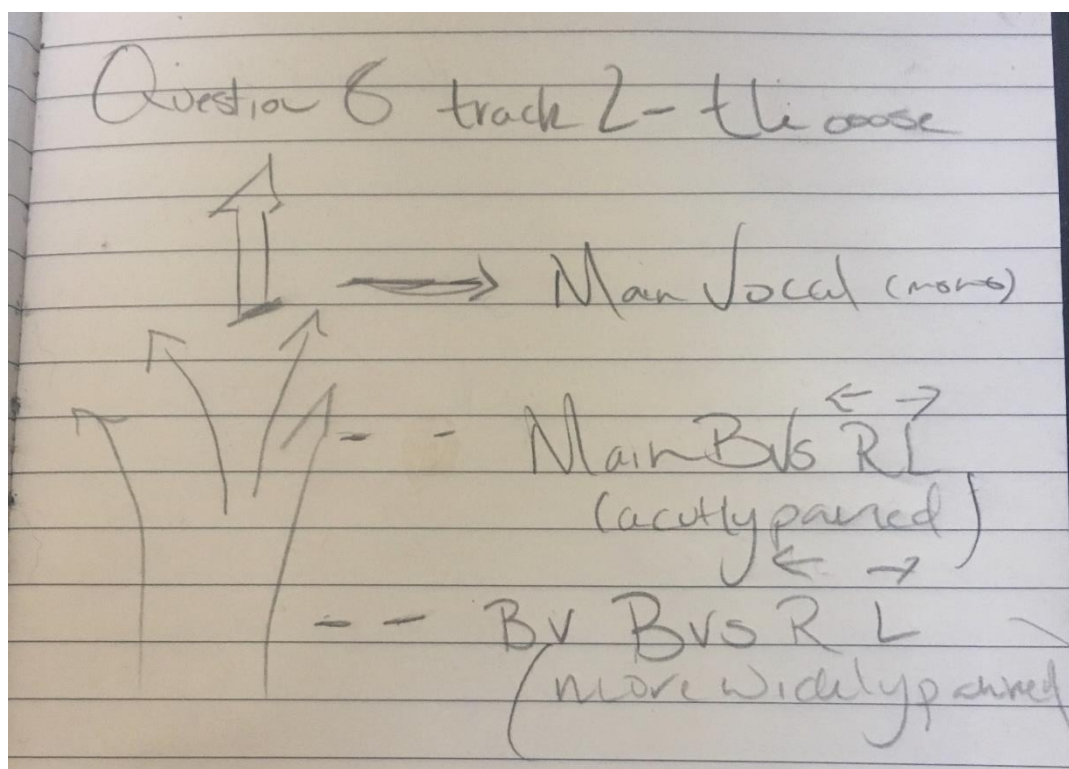 Question 6 track 2 - the ooose
Main Vocal (mono)
Main BVs R L
(acutly panned)
BV BVs R L
(more widely panned